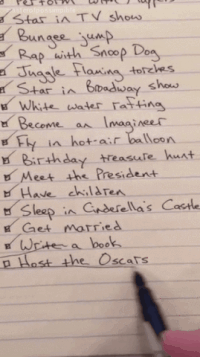 Perform with
Star in TV show
Bungee jump
Rap with Snoop Dog
Juggle flaming torches
Star in Broadway show
White water rafting
Become an Imagineer
Fly in hot-air balloon
Birthday treasure hunt
Meet the President
Have children
Sleep in Cinderella's Castle
Get married
Write a book
Host the Oscars